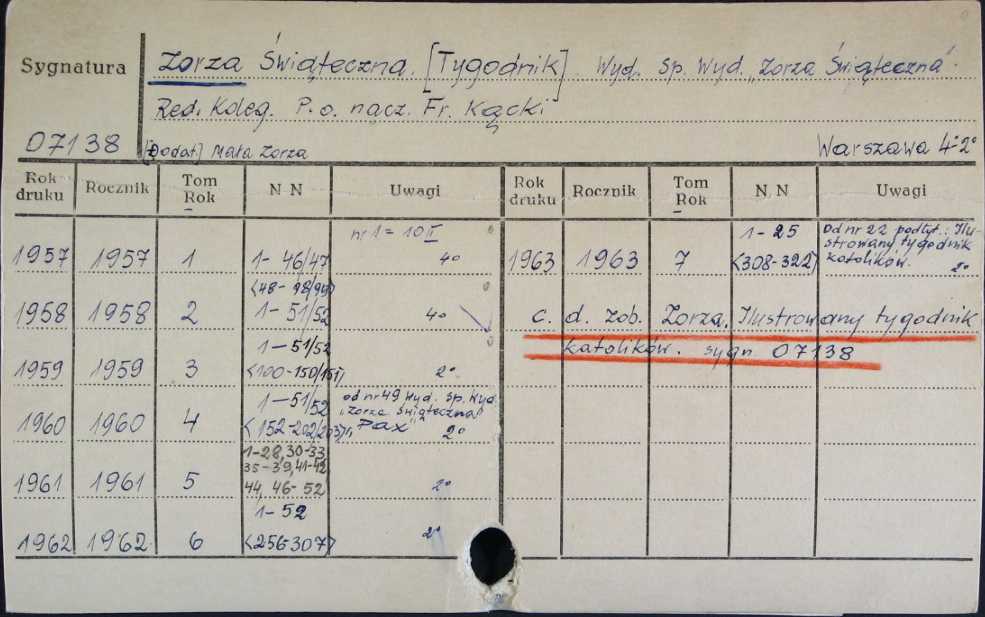 Sygnatura
Zorza Świąteczna. [Tygodnik] Wyd. Sp. Wyd. „Zorza Świąteczna”.
Red. Koleg. P. o. nacz. Fr. Kącki
07138 [Dodat.] Mała Zorza Warszawa 4°-2°
Rok druku Rocznik Tom Rok N N Uwagi Rok druku Rocznik Tom Rok N. N Uwagi
1957 1957 1 1-46/47 nr 1 = 10 II 4°
1958 1958 2 <48-98/99> 1-51/52 4°
1959 1959 3 1-51/52 <100-150/151> 2°
1960 1960 4 1-51/52 <152-202/203> od nr 49 Wyd. Sp. Wyd. „Zorza Świąteczna” „Pax” 2°
1961 1961 5 1-28, 30-33, 35-39, 41-42 44, 46-52 2°
1962 1962 6 1-52 <256-307> 2°
1963 1963 7 1-25 <308-322> Od nr 22 podtyt.: Ilu-
strowany tygodnik
katolików. 2°
c. d. zob. Zorza. Ilustrowany tygodnik
katolików. sygn. 07138